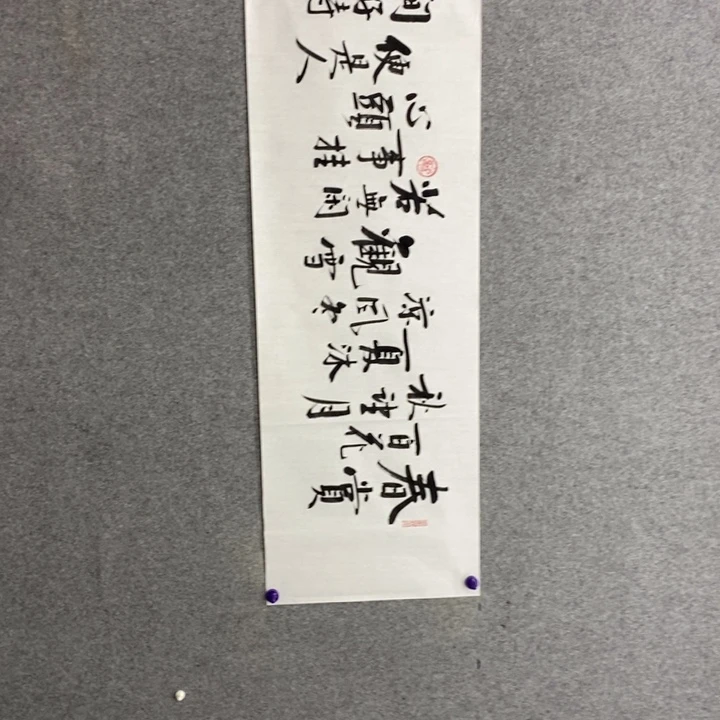 春賞
百花
秋望月
夏沐
涼風冬
觀雪
若無閑
事挂
心頭
便是人
間好時